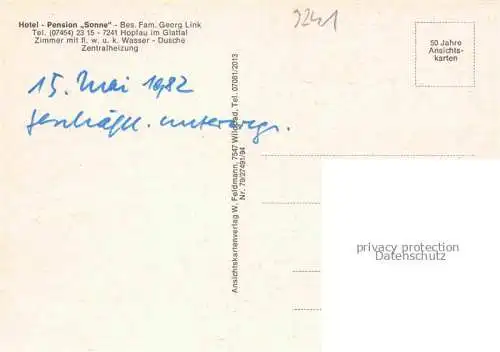 Hotel - Pension „Sonne" - Bes. Fam. Georg Link
Tel. (07454) 23 15 - 7241 Hopfau im Glattal
Zimmer mit fl. w. u. k. Wasser - Dusche
Zentralheizung
9241
50 Jahre
Ansichts-
karten
15. Mai 1982
geschäftl. unterwegs.
Ansichtskartenverlag W. Feldmann, 7547 Wildbad, Tel. 07081/2013
Nr. 79/27491/94
privacy protection
Datenschutz